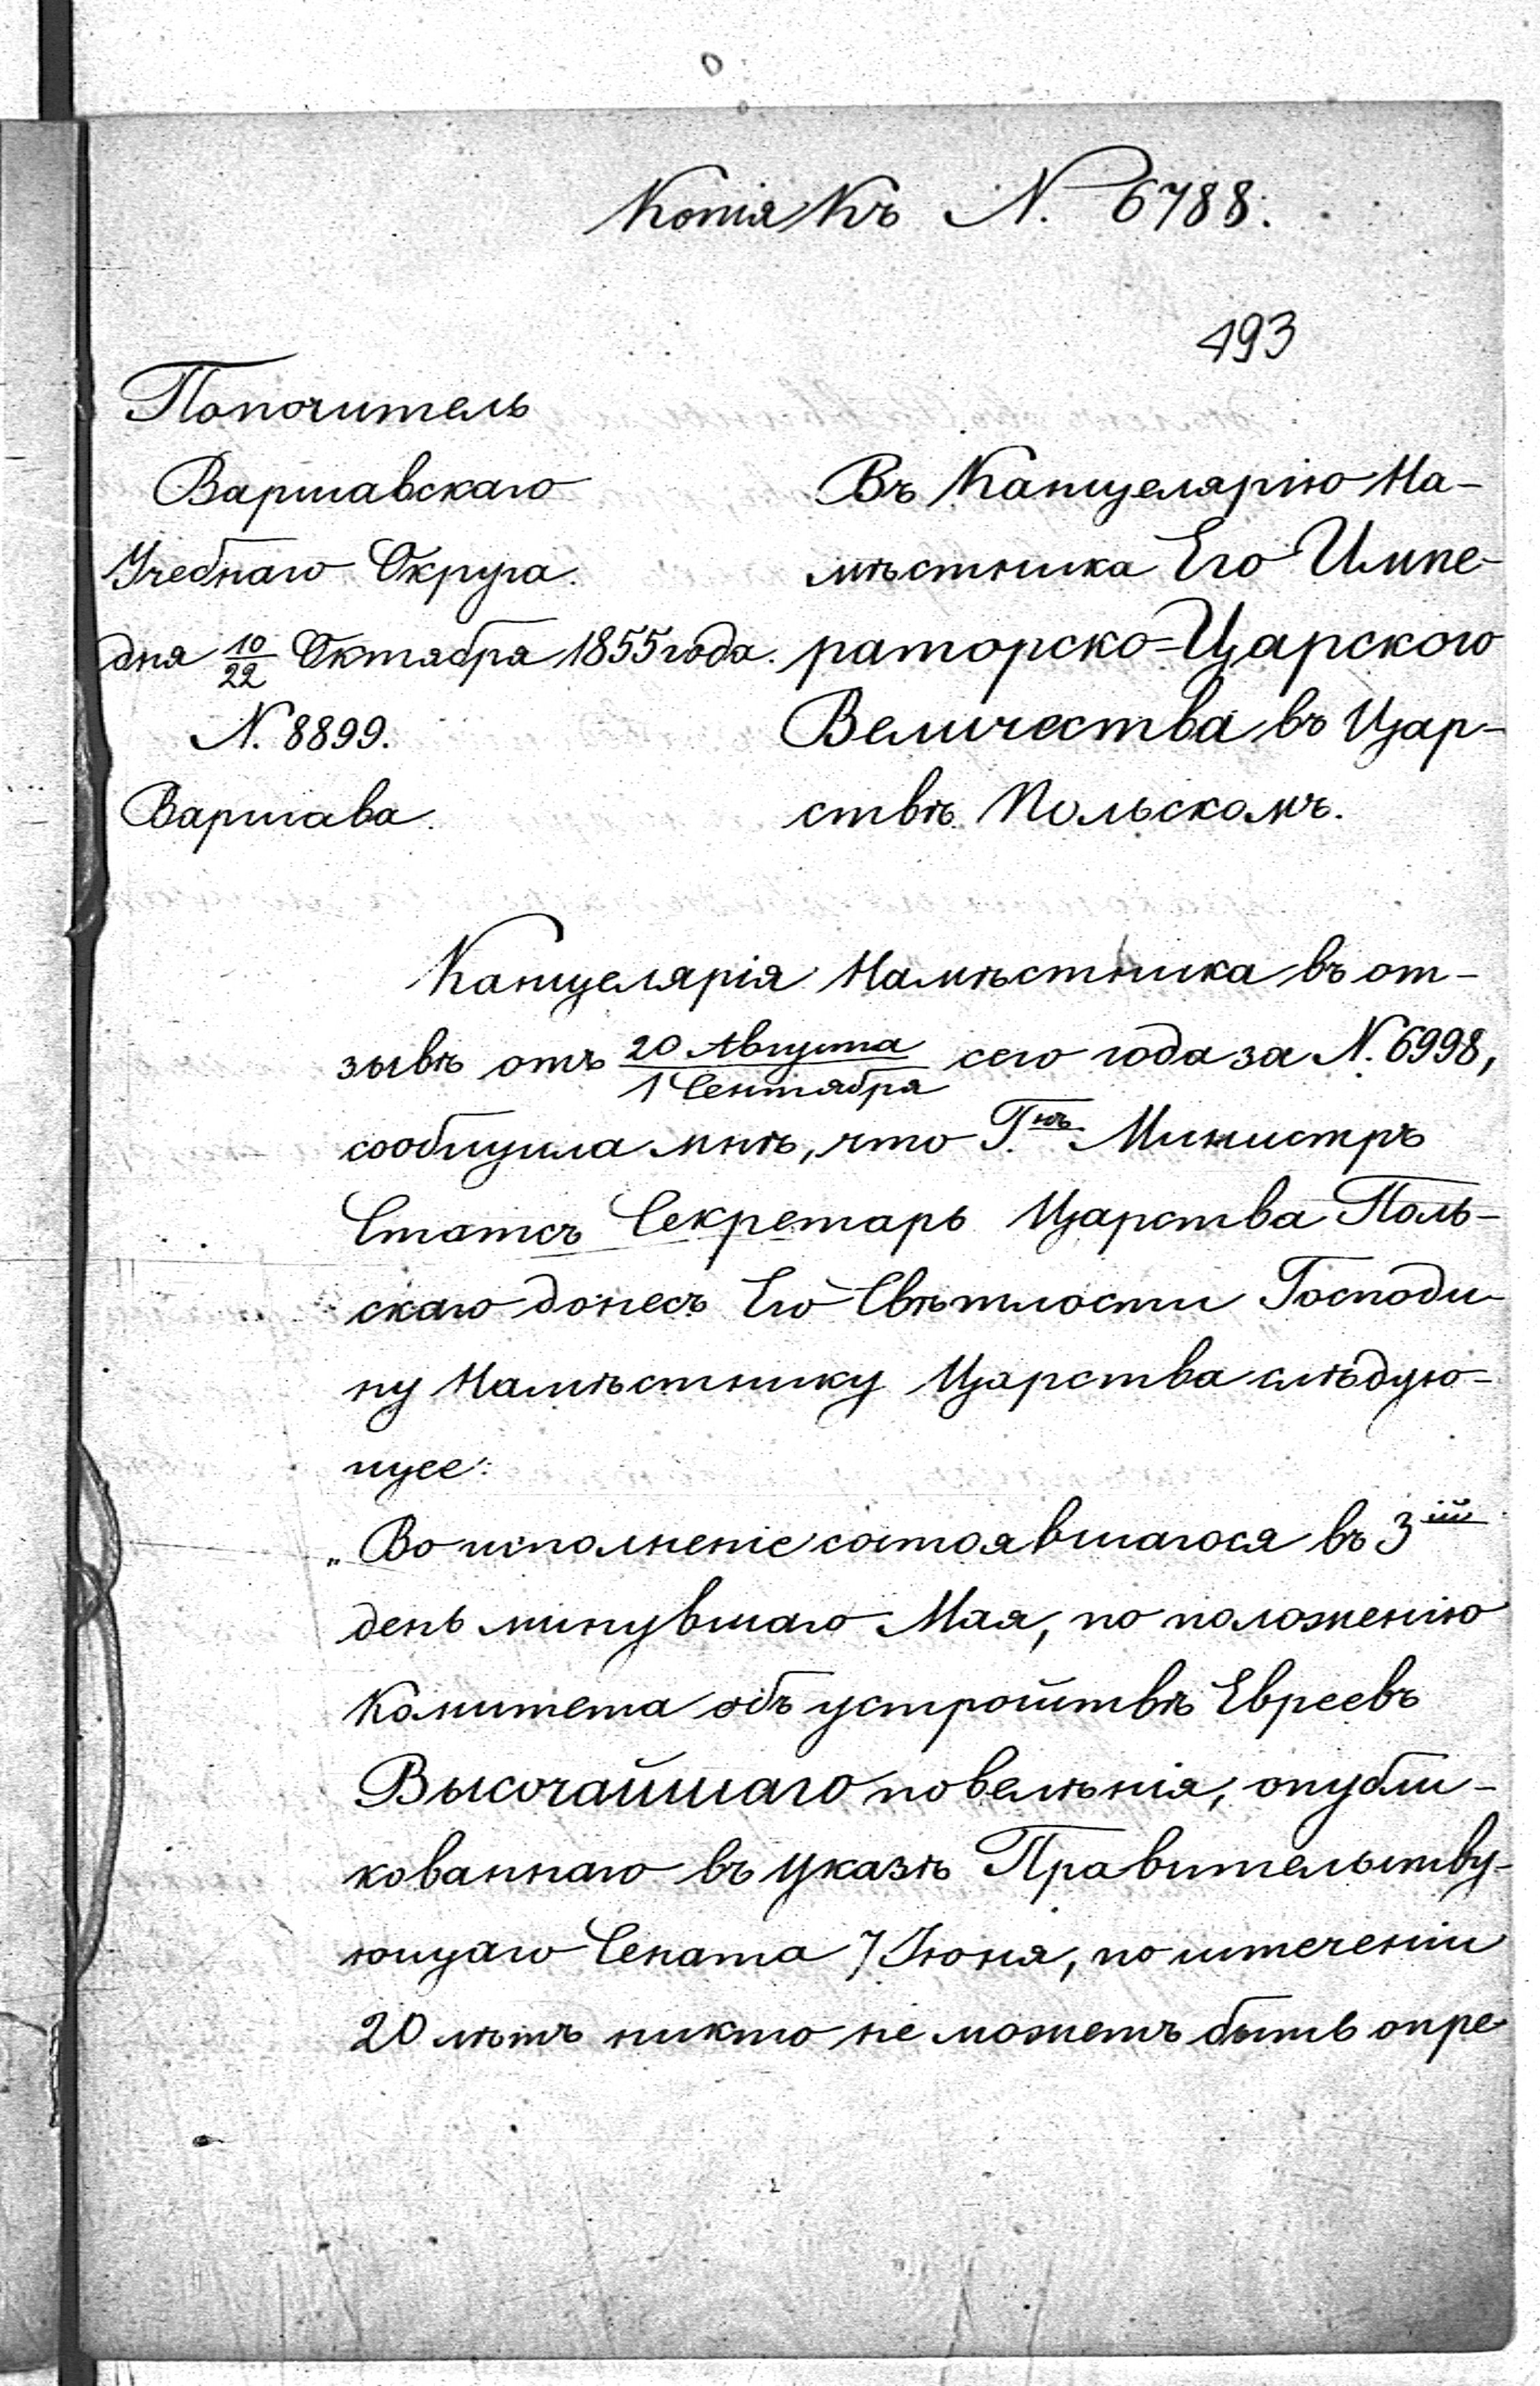 Копія Къ N. 6788.
493
Попочитель
Варшавскаго
Учебнаго Округа.
дня 10/22 Октября 1855 года.
N. 8899.
Варшава.
Въ Канцелярію На-
мѣстника Его Импе-
раторско=Царского
Величества въ Цар-
ствѣ Польскомъ.
Канцелярія Намѣстника въ от-
зывѣ отъ 20 Августа/1 Сентября сего года за N. 6998,
сообщила мнѣ, что Г.нъ Министръ
Статсъ Секретарь Царства Поль-
скаго донесъ Его Свѣтлости Господи-
ну Намѣстнику Царства слѣдую-
щее:
„Во исполненіе состоявшагося въ 3ій
день минувшаго Мая, по положенію
Комитета объ устройствѣ Евреевъ
Высочайшаго повелѣнія, опубли-
кованнаго въ указѣ Правительству-
ющаго Сената 7 Іюня, по истеченіи
20 лѣтъ никто не можетъ быть опре-